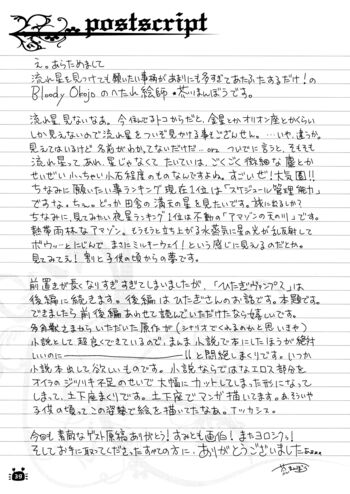 postscript
え。あらためまして
流れ星を見つけても願いたい事柄があまりにも多すぎてあたふたするだけ!の
Bloody Okojoのへたれ絵師・ぽうです。
流れ星、見ないなあ。今住んでるトコからだと、金星とかオリオン座とかくらい
しか見えないので流れ星をついぞ見かける事もございません。…いや、違うか。
見えてはいるけど名前がわかってないだけだ…orz ついでに言うと、そもそも
流れ星って、あれ、星じゃなくてたいていは、ごくごく微細な塵とか
せいぜいちっちゃい小石程度のものなんですよね。すごいぜ!大気圏!!
ちなみに願いたい事ランキング現在1位は「スケジュール管理能力」
ですな。ちっ。どっか田舎の満天の星を見たいです。旅に出るしか?
ちなみに、見てみたい夜星ランキング1位は不動の「アマゾンの天の川」です。
熱帯雨林なアマゾン。もうもうと立ち上がる水蒸気に星の光が乱反射して
ボウ〜っとにじんで、まさにミルキーウェイ!という感じに見えるのだとか。
見てみてえ!割と子供の頃からの夢です。
前置きが長くなりすぎすぎてしまいましたが、「ひたぎヴァンプス」は
後編に続きます。後編はひたぎさんのお話です。本題です。
できましたら前後編あわせて読んでいただけたなら嬉しいです。
いただいた原作が(シナリオでくれるのかと思いきや)
小説として超良くできているので、まんま小説で本にしたほうが絶対
いいのに――――!!と悶絶しまくりです。いつか
小説本出して欲しいものです。小説ならではなエロス部分を
オイラのジツリキ不足のせいで大幅にカットしてしまった形になって
しまって、土下座まくりです。土下座でマンガ描いてます。ああそういや
子供の頃ってこの姿勢で絵を描いてたなあ。ナツカシス。
今回も素敵なゲスト原稿ありがとう!すみとも画伯!またヨロシクッ!
そしてお手に取ってくださったすべての方に、ありがとうございました
39